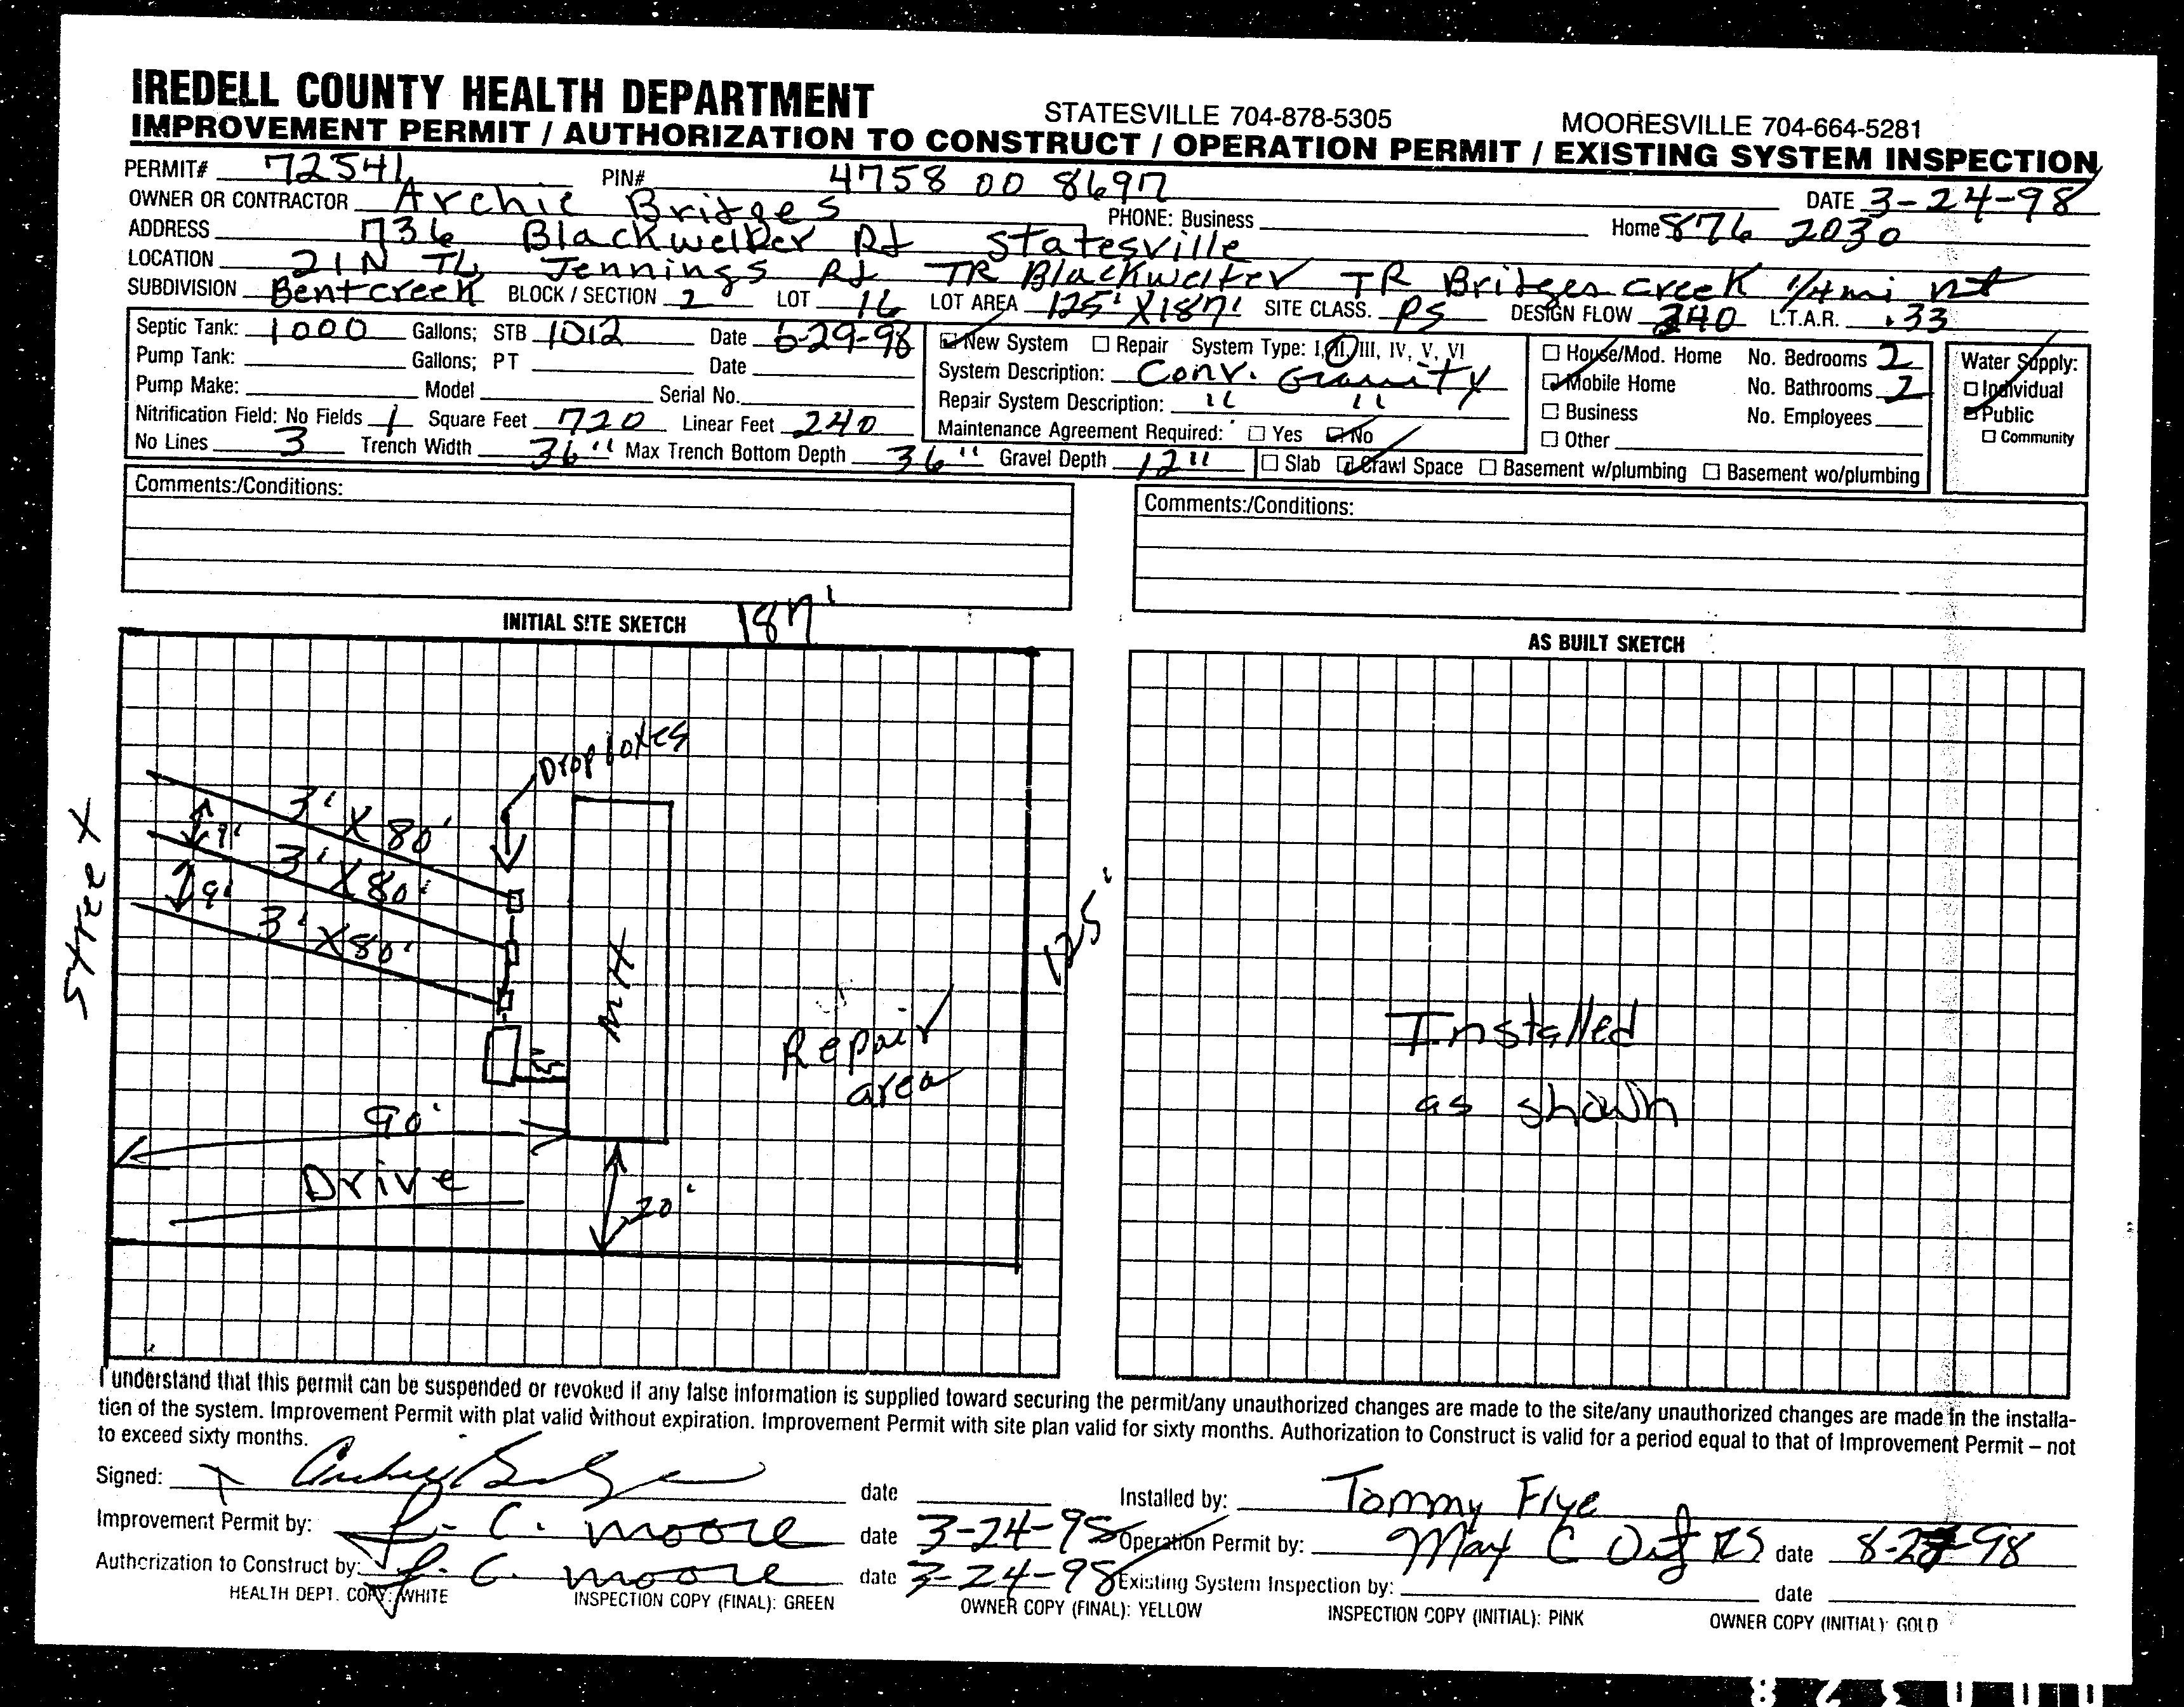 IREDELL COUNTY HEALTH DEPARTMENT STATESVILLE 704-878-5305 MOORESVILLE 704-664-5281
IMPROVEMENT PERMIT / AUTHORIZATION TO CONSTRUCT / OPERATION PERMIT / EXISTING SYSTEM INSPECTION
PERMIT# 72541 PIN# 4758 00 8697 DATE 3-24-98
OWNER OR CONTRACTOR Archie Bridges PHONE: Business Home 876 2030
ADDRESS 736 Blackwelder Rd Statesville
LOCATION 21N TL Jennings Rd TR Blackwelder TR Bridges creek 1/4 mi
SUBDIVISION Bentcreek BLOCK / SECTION 2 LOT 16 LOT AREA 125' X 187' SITE CLASS. PS DESIGN FLOW 240 L.T.A.R. .33
Septic Tank: 1000 Gallons; STB 1012 Date 6-29-98
Pump Tank: Gallons; PT Date
Pump Make: Model Serial No.
Nitrification Field: No Fields 1 Square Feet 720 Linear Feet 240
No Lines 3 Trench Width 36" Max Trench Bottom Depth 36" Gravel Depth 12"
☑ New System ☐ Repair System Type: I, II, III, IV, V, VI
System Description: Conv. Gravity
Repair System Description: " "
Maintenance Agreement Required: ☐ Yes ☑ No
☐ Slab ☑ Crawl Space ☐ Basement w/plumbing ☐ Basement wo/plumbing
☐ House/Mod. Home No. Bedrooms 2
☑ Mobile Home No. Bathrooms 2
☐ Business No. Employees
☐ Other
Water Supply:
☐ Individual
☑ Public
☐ Community
Comments:/Conditions:
Comments:/Conditions:
INITIAL SITE SKETCH 187'
AS BUILT SKETCH
Drop boxes
3' X 80'
9'
3' X 80'
9'
3' X 80'
Street
125'
MH
Repair
area
90'
Drive
20'
Installed
as shown
I understand that this permit can be suspended or revoked if any false information is supplied toward securing the permit/any unauthorized changes are made to the site/any unauthorized changes are made in the installa-
tion of the system. Improvement Permit with plat valid without expiration. Improvement Permit with site plan valid for sixty months. Authorization to Construct is valid for a period equal to that of Improvement Permit – not
to exceed sixty months.
Signed: X Archie Bridges date Installed by: Tommy Frye
Improvement Permit by: J. C. Moore date 3-24-98 Operation Permit by: RS date 8-27-98
Authorization to Construct by: J. C. Moore date 3-24-98 Existing System Inspection by: date
HEALTH DEPT. COPY: WHITE INSPECTION COPY (FINAL): GREEN OWNER COPY (FINAL): YELLOW INSPECTION COPY (INITIAL): PINK OWNER COPY (INITIAL): GOLD